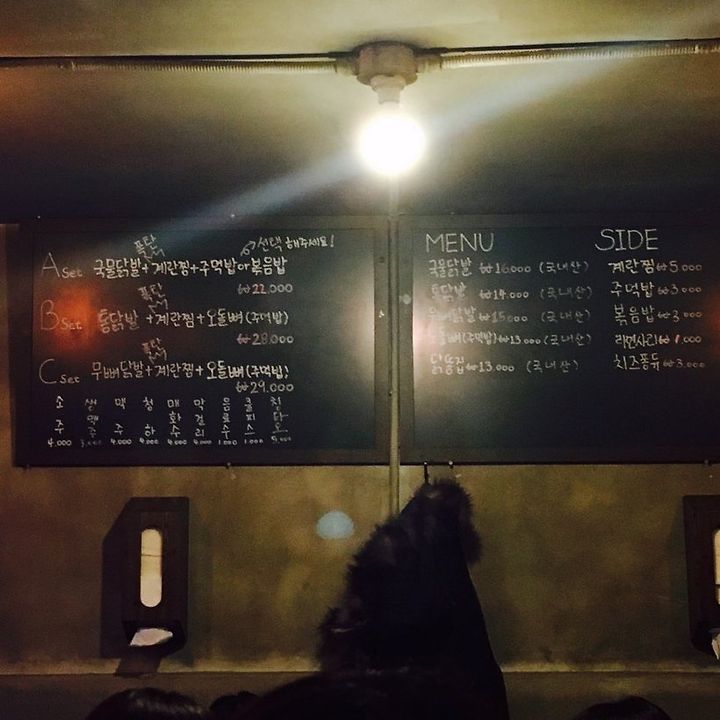 폭탄
선택 해주세요!
A Set 국물닭발+계란찜+주먹밥 or 볶음밥
₩22.000
폭탄
B Set 통닭발 +계란찜+오돌뼈(주먹밥)
₩28.000
폭탄
C Set 무뼈닭발+계란찜+오돌뼈(주먹밥)
₩29.000
소 생 맥 청 매 막 음 쿨 청
주 맥 주 하 화 걸 료 피 하
4.000 4.000 4.000 4.000 1.000 1.000
MENU
국물닭발 ₩16.000 (국내산)
통닭발 ₩14.000 (국내산)
무뼈닭발 ₩15.000 (국내산)
오돌뼈(주먹밥) ₩13.000 (국내산)
닭똥집 ₩13.000 (국내산)
SIDE
계란찜 ₩5.000
주먹밥 ₩3.000
볶음밥 ₩3.000
라면사리 ₩1.000
치즈퐁듀 ₩3.000